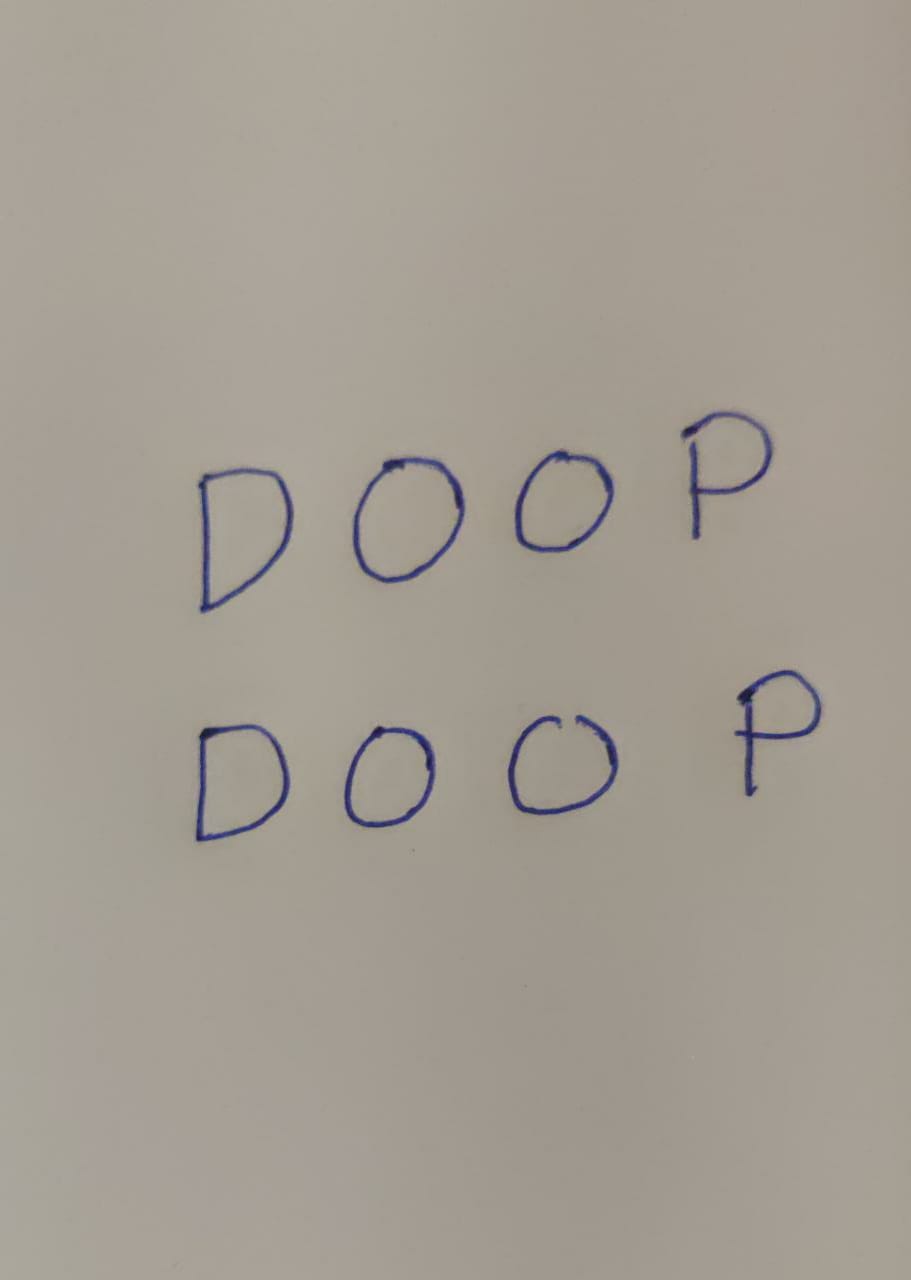 DOOP
DOOP